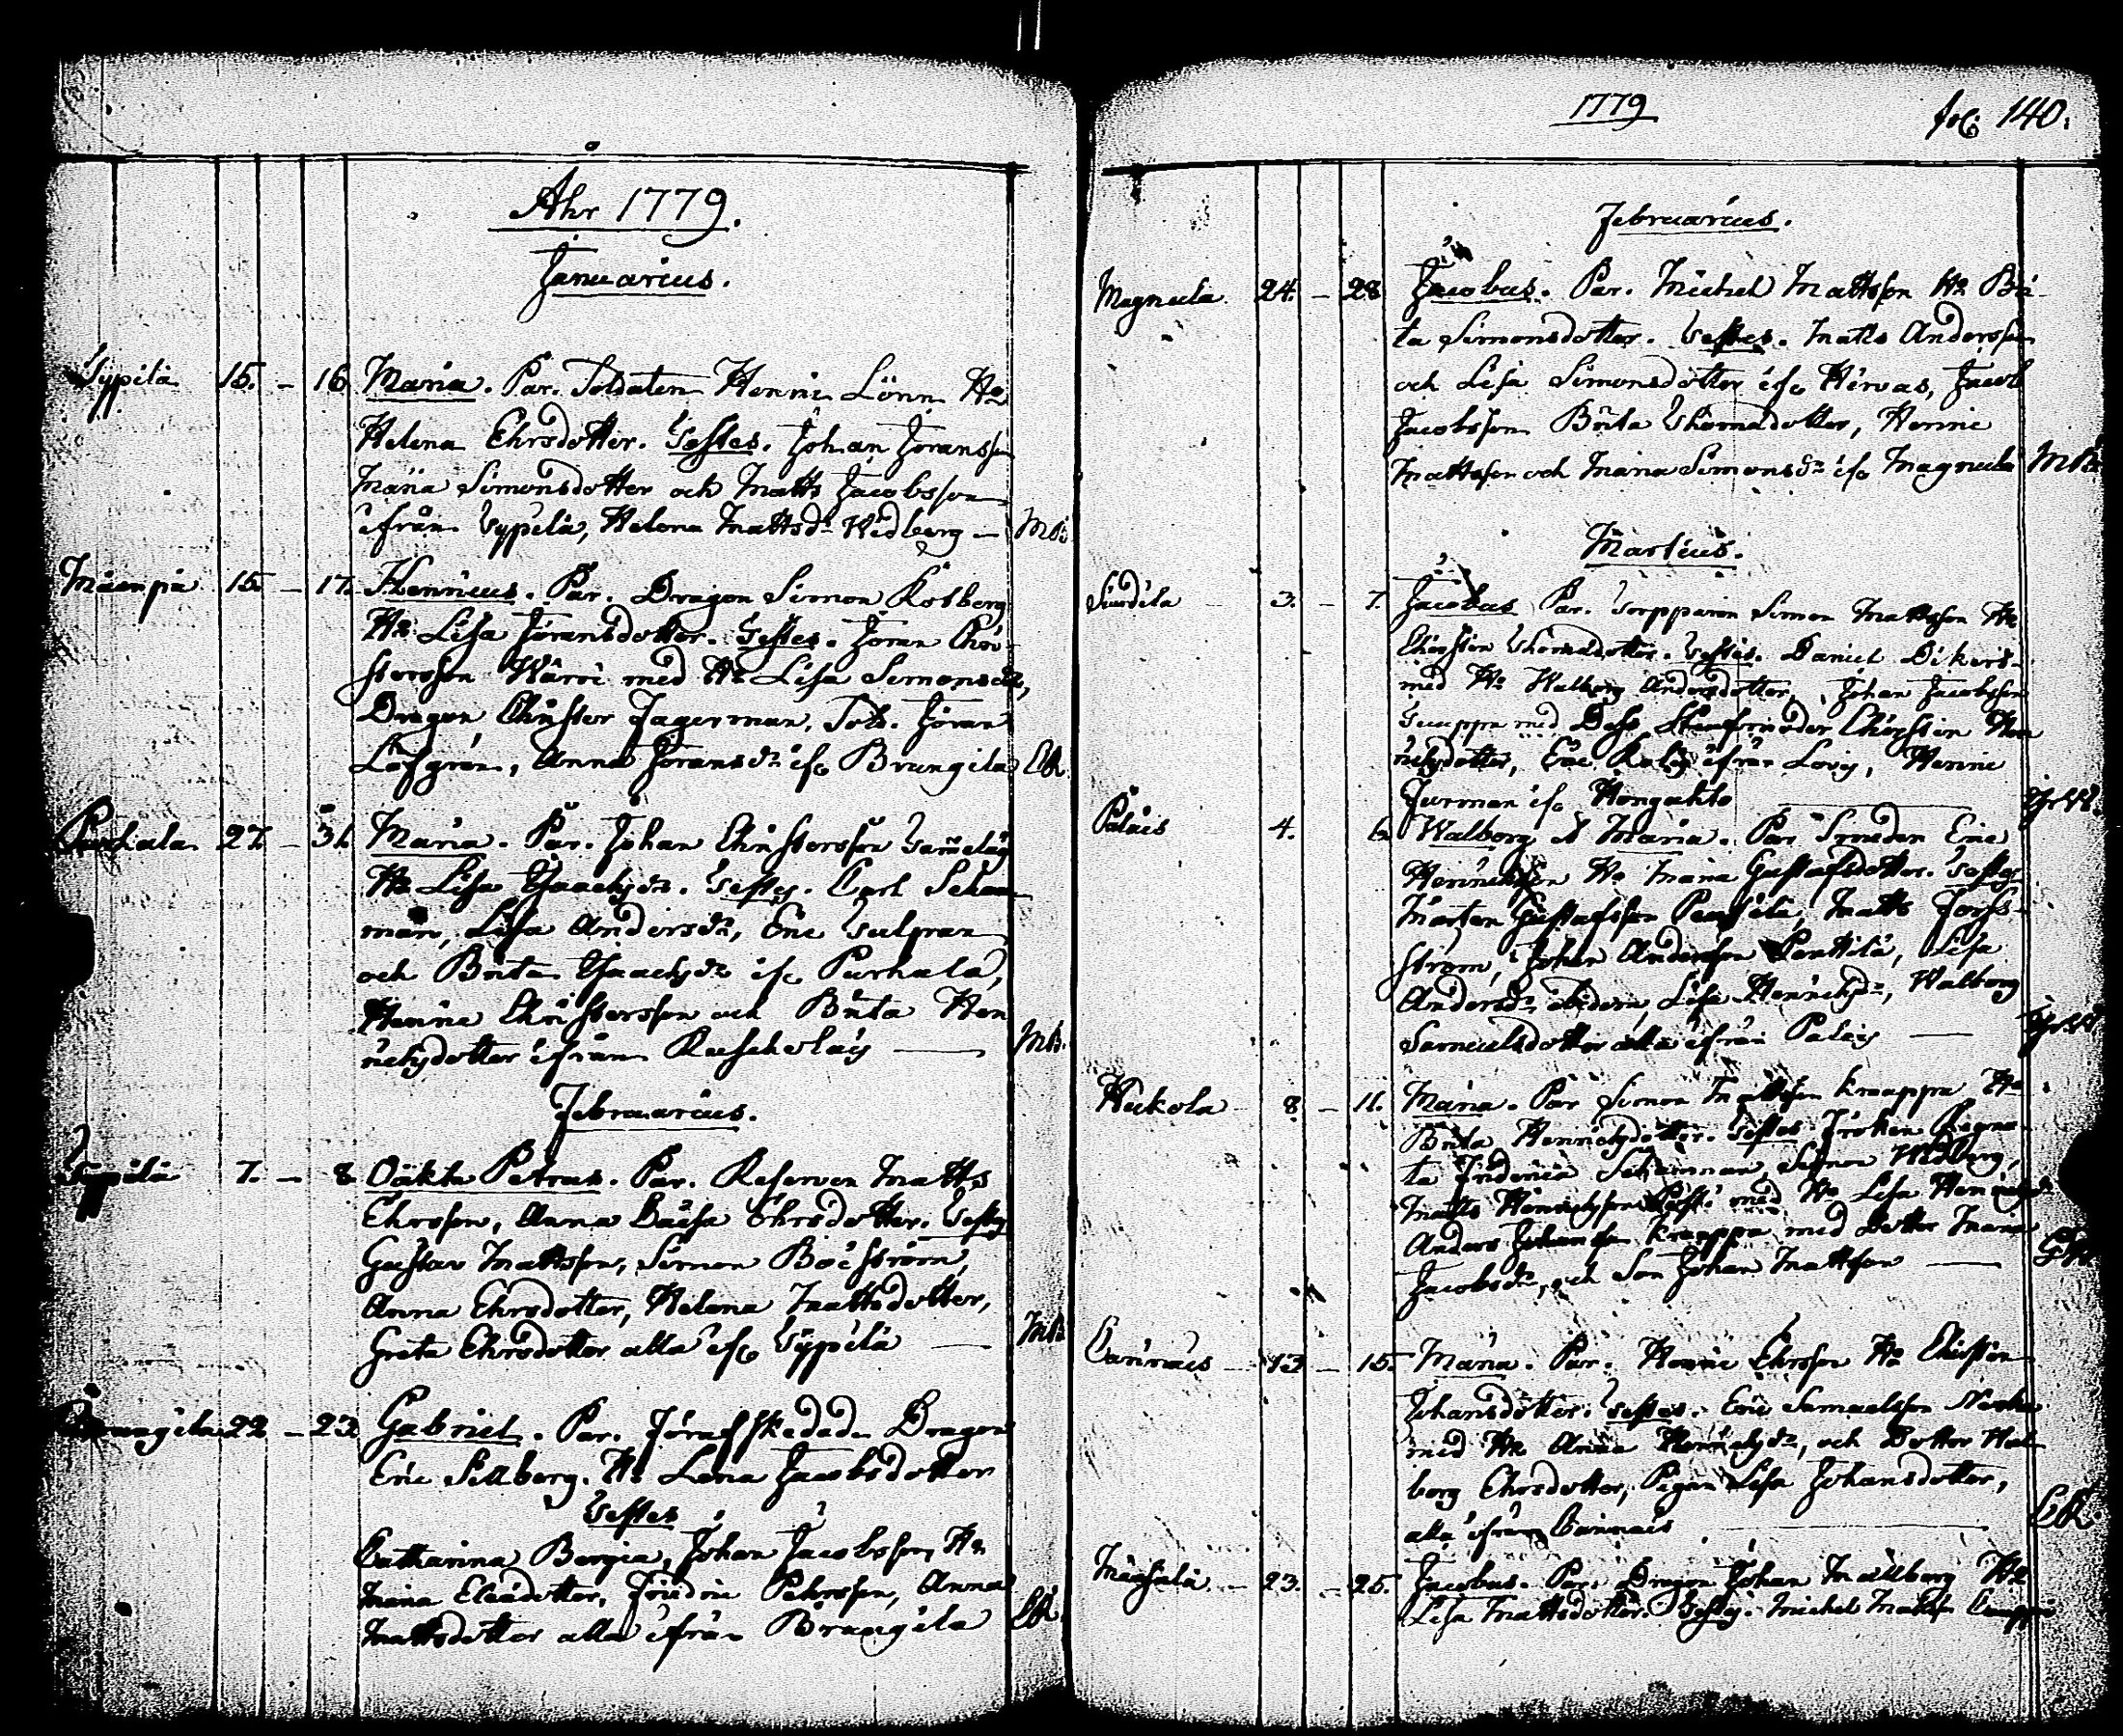 Åhr 1779.
Januarius.
Sypilä 15. – 16 Maria. Par. Soldaten Henric Lönn Hu
Helena Ehrsdotter. Testes. Johan Jöransson
Maria Simonsdotter och Matts Jacobsson
ifrån Sypilä, Helena Mattsdr Widberg – MB.
Mäenpä 15. – 17. Henricus. Par. Dragon Simon Kosberg
Hu Lisa Jöransdotter. Testes. Jöran Chri-
stersson Wärri med Hu Lisa Simonsdr,
Dragon Christer Jagerman, Sold. Jöran
Löfgren, Anna Jöransdr if. Brungila CR.
Purhala 27. – 31. Maria. Par. Johan Christersson
Hu Lisa Isaachsdr. Testes. Carl Schau-
man, Lisa Andersdr, Eric
och Brita Isaachsdr if. Purhala,
Henric Christersson och Brita Hen
richsdotter ifrån MB.
Februarius.
Sypilä 7. – 8 Oäkta Petrus. Par. Reserven Matts
Ehrsson, Anna Caisa Ehrsdotter. Testes
Gustav Mattsson, Simon Boeström,
Anna Ehrsdotter, Helena Mattsdotter,
Greta Ehrsdotter alla if. Sypilä — MB
Brungila 22 – 23 Gabriel. Par. Förafskedad. Dragon
Eric Sillberg. Hu Lena Jacobsdotter
Testes
Catharina Bergia, Johan Jacobsson, Hu
Maria Eliædotter, Fridric Pehrsson, Anna
Mattsdotter alla ifrån Brungila CR.
1779 fol: 140.
Februarius.
Magnula 24. – 28 Jacobus. Par. Michel Mattsson Hu Bri-
ta Simonsdotter. Testes. Matts Andersson
och Lisa Simonsdotter if. Hirvas, Jacob
Jacobsson Brita Thomædotter, Henric
Mattsson och Maria Simonsdr if. Magnula MB.
Martius.
3. – 7. Jacobus Par. Torpparen Simon Mattsson Hu
Christin Thomædotter. Testes. Daniel
med Hu Walborg Andersdotter, Johan Jacobsson
med Dess Christin Hen
richsdotter, Eric ifrån Henric
Furman if. Hongahlo
Palais 4. 6. Walborg & Maria. Par Smeden Eric
Henrichsson Hu Maria Gustafsdotter. Testes
Mårten Gustafsson Matts Forss-
ström, Johan Andersson Penttilä, Lisa
Andersdr ibidem, Lisa Henrichsdr, Walborg
Samuelsdotter alla ifrån Palais —
Huckola 8 – 11. Maria. Par Simon Mattsson Knaappa Hu
Brita Henrichsdotter. Testes Fröken Regna-
ta Fridrica Schauman, Simon Widberg,
Matts Henrichsson med Hu Lisa
Anders Johansson Knaappa med Dotter Maria
Jacobsdr, och Son Johan Mattsson —
Cannais 13 – 15. Maria. Par. Henric Ehrsson Hu Christin
Johansdotter. Testes. Eric Samuelsson
med Hu Anna Henrichsdr, och Dotter Wal-
borg Ehrsdotter, Pigan Lisa Johansdotter,
alla ifrån Cannais CR.
23. – 25. Jacobus. Par. Dragon Johan Mällberg Hu
Lisa Mattsdotter. Testes. Michel Mattsson